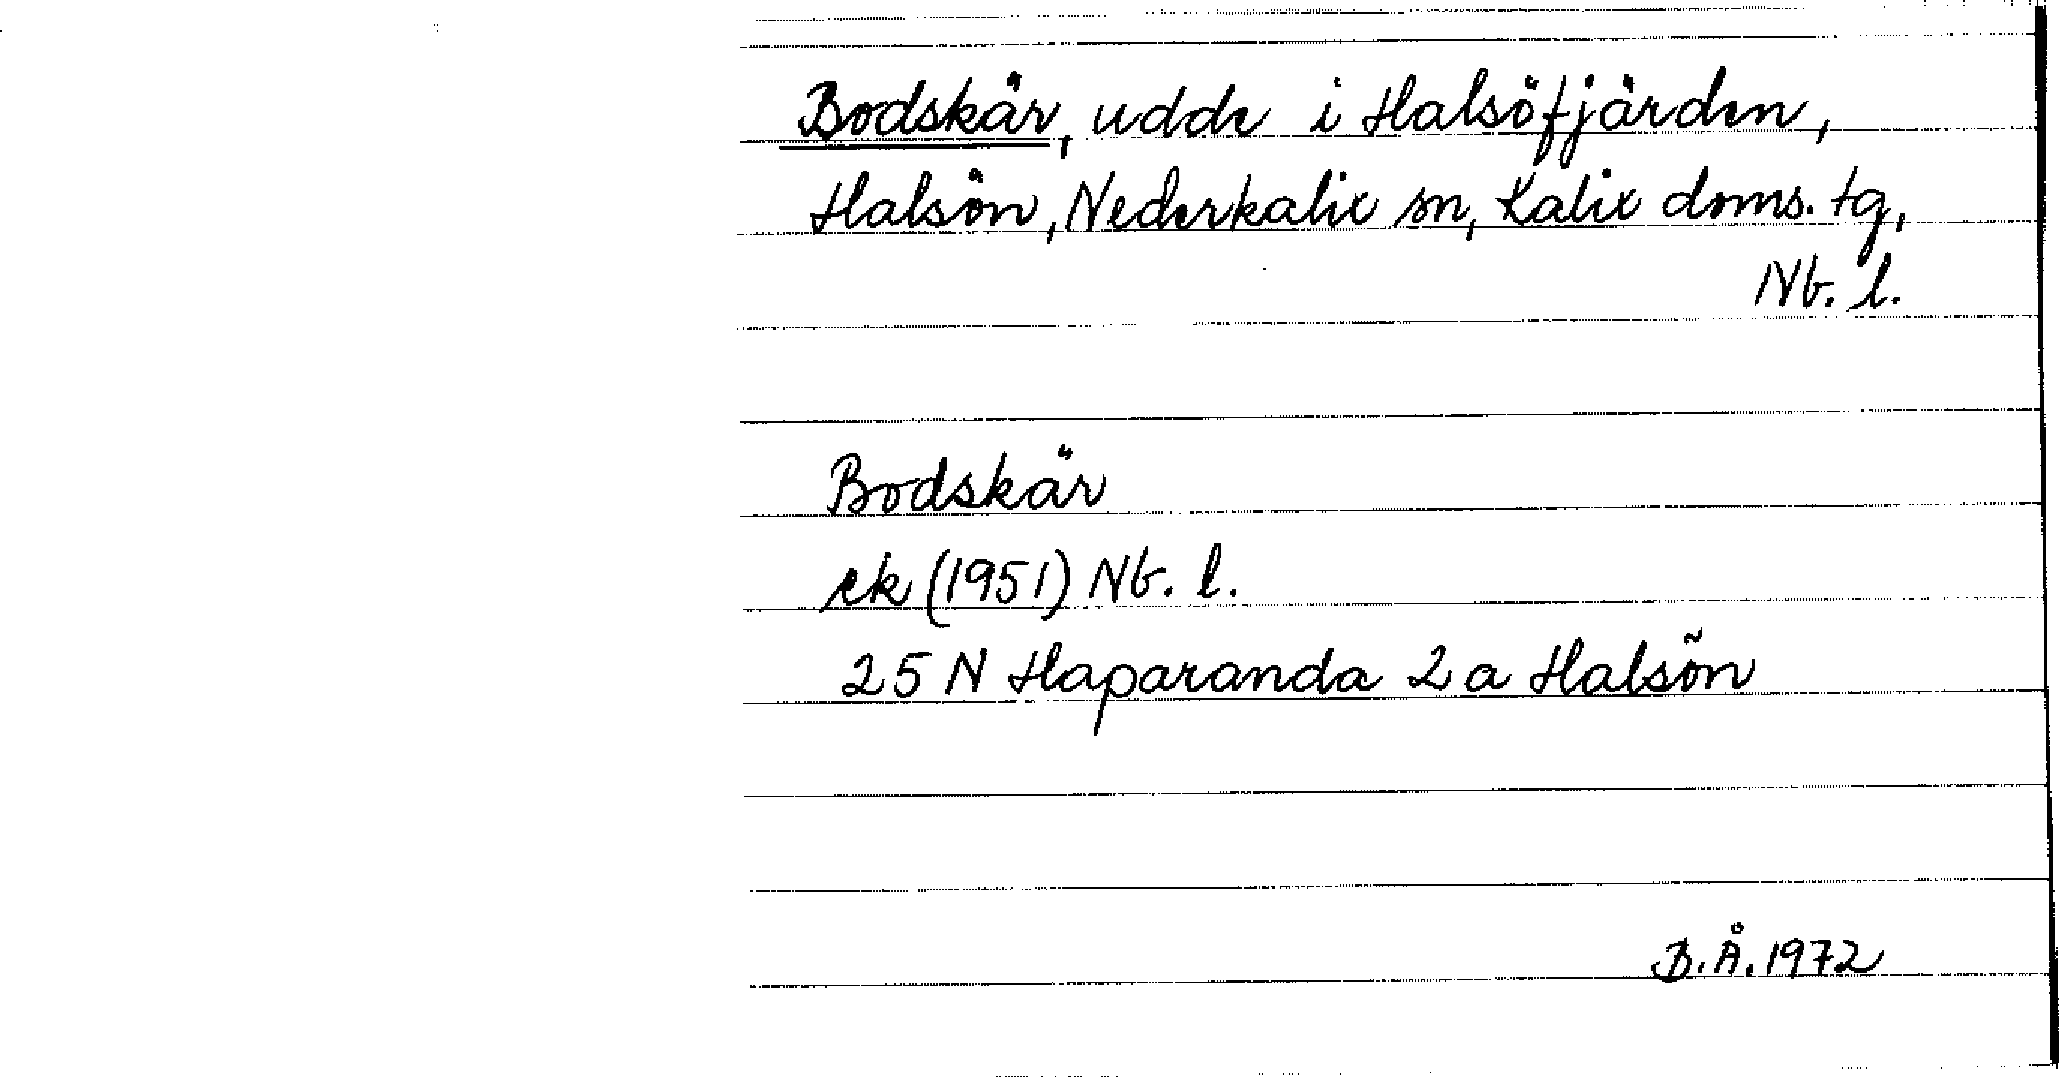 Bodskär, udde i Halsöfjärden,
Halsön, Nederkalix sn, Kalix doms. tg,
Nb. l.
Bodskär
ek (1951) Nb. l.
25 N Haparanda 2 a Halsön
B.Å. 1972